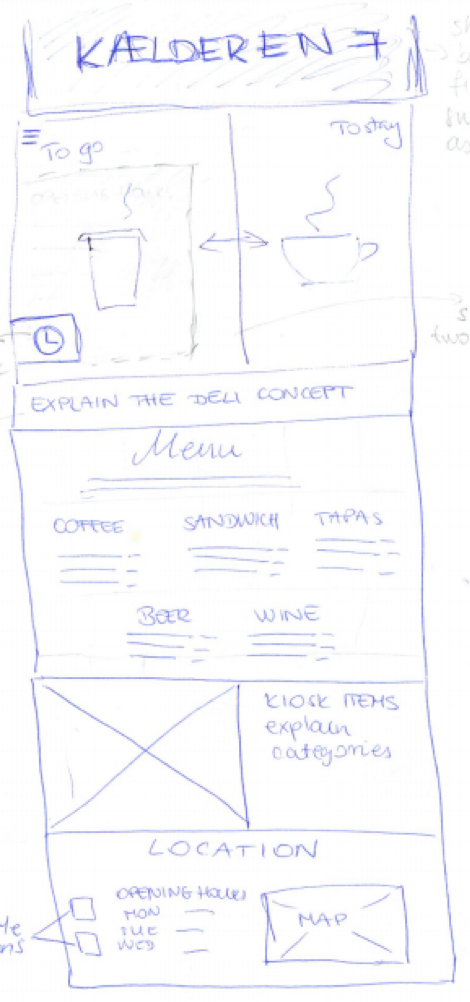 KÆLDEREN 7
To go
To stay
two
EXPLAIN THE DELI CONCEPT
Menu
COFFEE SANDWICH TAPAS
BEER WINE
KIOSK ITEMS
explain
categories
LOCATION
OPENING HOURS
MON
TUE
WED
MAP